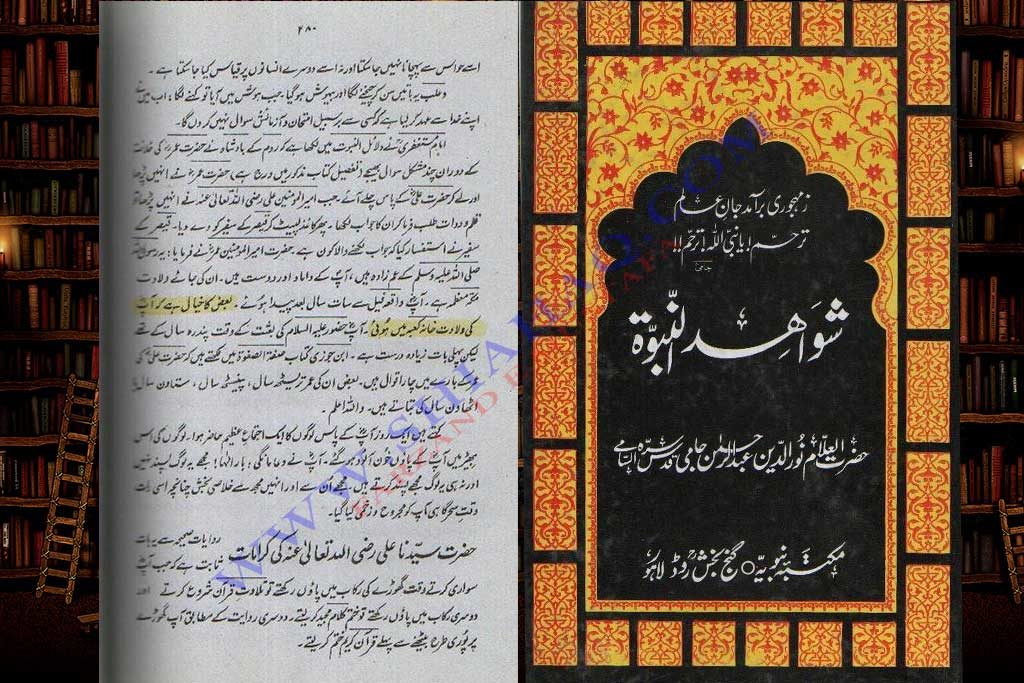 ۲۸۰
اسے حواس سے پہچانا نہیں جا سکتا اور نہ اسے دوسرے انسانوں پر قیاس کیا جا سکتا ہے۔
دعلب یہ باتیں سن کر چیخنے لگا اور بیہوش ہو گیا۔ جب ہوش میں آیا تو کہنے لگا: اب میں نے
اپنے خدا سے عہد کر لیا ہے کہ کسی سے برسبیل امتحان و آزمائش سوال نہیں کروں گا۔
امام مستغفریؒ نے دلائل النبوت میں لکھا ہے کہ روم کے بادشاہ نے حضرت عمرؓ کی خلافت
کے دوران چند مشکل سوال بھیجے (تفصیل کتاب مذکور میں درج ہے) حضرت عمرؓ نے انہیں پڑھا
اور لے کر حضرت علیؓ کے پاس چلے آئے۔ جب امیر المومنین علی رضی اللہ تعالیٰ عنہ نے انہیں پڑھا تو
قلم دوات طلب فرما کر ان کا جواب لکھا۔ پھر کاغذ لپیٹ کر قیصر کے سفیر کو دے دیا۔ قیصر کے
سفیر نے استفسار کیا کہ جواب لکھنے والا کون ہے۔ حضرت امیر المومنین عمرؓ نے فرمایا: یہ رسول اللہ
صلی اللہ علیہ وسلم کے عم زادہ ہیں، آپؐ کے داماد اور دوست ہیں۔ ان کی جائے ولادت
مکہ معظمہ ہے۔ آپؓ واقعہ فیل سے سات سال بعد پیدا ہوئے۔ بعض کا خیال ہے کہ آپؓ
کی ولادت خانہ کعبہ میں ہوئی۔ آپؓ حضور علیہ السلام کی بعثت کے وقت پندرہ سال کے تھے
لیکن پہلی بات زیادہ درست ہے۔ ابن جوزی کتاب صفۃ الصفوۃ میں لکھتے ہیں کہ حضرت علیؓ کی
کے بارے میں چار اقوال ہیں۔ بعض ان کی عمر تریسٹھ سال، پینسٹھ سال، ستاون سال یا
اٹھاون سال کی بتاتے ہیں۔ واللہ اعلم۔
کہتے ہیں ایک روز آپؓ کے پاس لوگوں کا ایک اجتماع عظیم حاضر ہوا۔ لوگوں کی اس
بھیڑ میں آپؓ کے پاؤں خون آلود ہو گئے۔ آپؓ نے دعا مانگی: بار الٰہا! مجھے یہ لوگ پسند نہیں
اور نہ ہی یہ لوگ مجھے پسند کرتے ہیں۔ مجھے ان سے اور انہیں مجھ سے خلاصی بخش چنانچہ اسی رات
وقت سحر گاہی آپؓ کو مجروح و زخمی کیا گیا۔
حضرت سیدنا علی رضی اللہ تعالیٰ عنہ کی کرامات
روایات صحیحہ سے یہ بات
ثابت ہے کہ جب آپؓ
سواری کرتے وقت گھوڑے کی رکاب میں پاؤں رکھتے تو تلاوت قرآن شروع کرتے اور
دوسری رکاب میں پاؤں رکھتے تو ختم کلام مجید کر لیتے۔ دوسری روایت کے مطابق آپؓ گھوڑے
پر پوری طرح بیٹھنے سے پہلے قرآن کریم ختم کر لیتے۔
ز مہجوری برآمد جان عالم
ترحم! یا نبی اللہ! ترحم!!
جامیؒ
شواہد النبوۃ
حضرت علامہ نور الدین عبد الرحمن جامی قدس سرہ السامی
مکتبہ نبویہ ○ گنج بخش روڈ لاہور